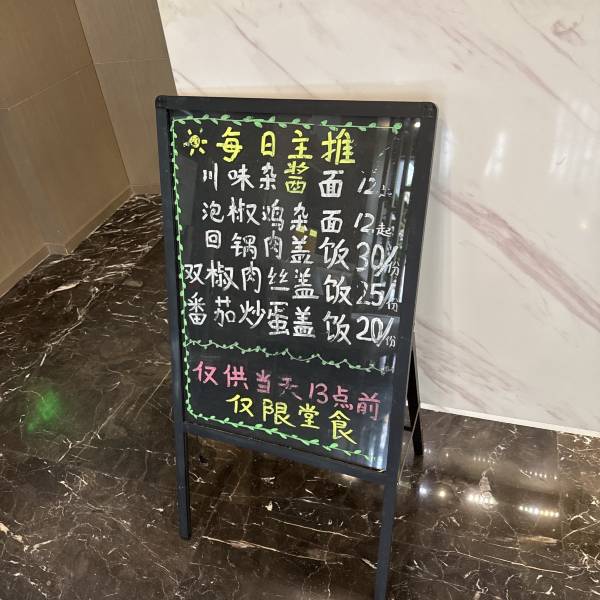 每日主推
川味杂酱面 12起
泡椒鸡杂面 12起
回锅肉盖饭 30/份
双椒肉丝盖饭 25/份
番茄炒蛋盖饭 20/份
仅供当天13点前
仅限堂食